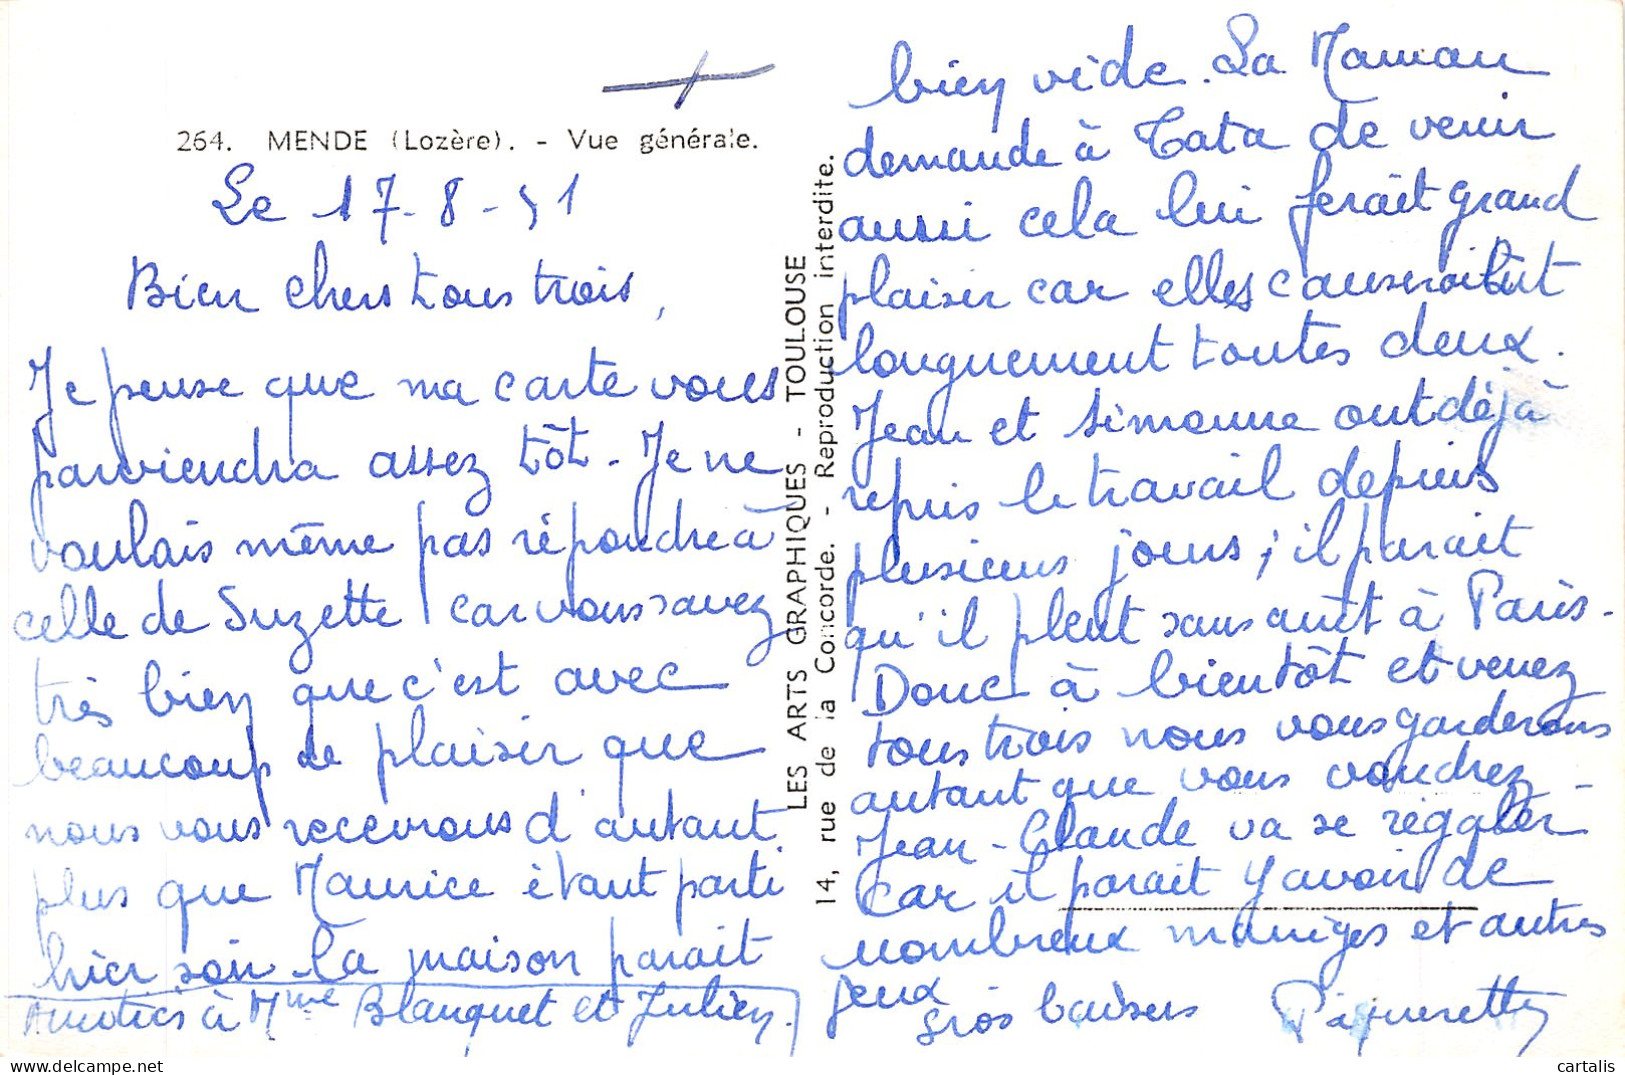 264. MENDE (Lozère). - Vue générale.
Le 17-8-51
Bien chers tous trois,
Je pense que ma carte vous
parviendra assez tôt. Je ne
voulais même pas répondre à
celle de Suzette car vous savez
très bien que c'est avec
beaucoup de plaisir que
nous vous recevrons d'autant
plus que Maurice étant parti
hier soir la maison parait
Amitiés à Mme Blanquet et Julien.
LES ARTS GRAPHIQUES - TOULOUSE
14, rue de la Concorde. - Reproduction interdite.
bien vide. La Maman
demande à Tata de venir
aussi cela lui ferait grand
plaisir car elles causeraient
longuement toutes deux.
Jean et Simonne ont déjà
repris le travail depuis
plusieurs jours; il parait
qu'il pleut sans arrêt à Paris.
Donc à bientôt et venez
tous trois nous vous garderons
autant que vous voudrez.
Jean-Claude va se régaler
car il parait y avoir de
nombreux manèges et autres
jeux
Gros baisers Pâquerette
cartalis